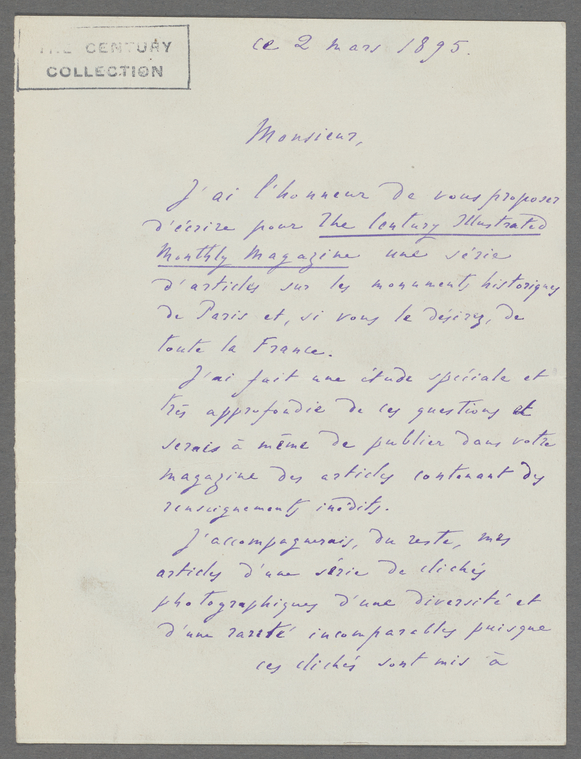 THE CENTURY
COLLECTION
ce 2 mars 1895.
Monsieur,
J'ai l'honneur de vous proposer
d'écrire pour The Century Illustrated
Monthly Magazine une série
d'articles sur les monuments historiques
de Paris et, si vous le désirez, de
toute la France.
J'ai fait une étude spéciale et
très approfondie de ces questions et
serais à même de publier dans votre
magazine des articles contenant des
renseignements inédits.
J'accompagnerais, du reste, mes
articles d'une série de clichés
photographiques d'une diversité et
d'une rareté incomparables puisque
ces clichés sont mis à